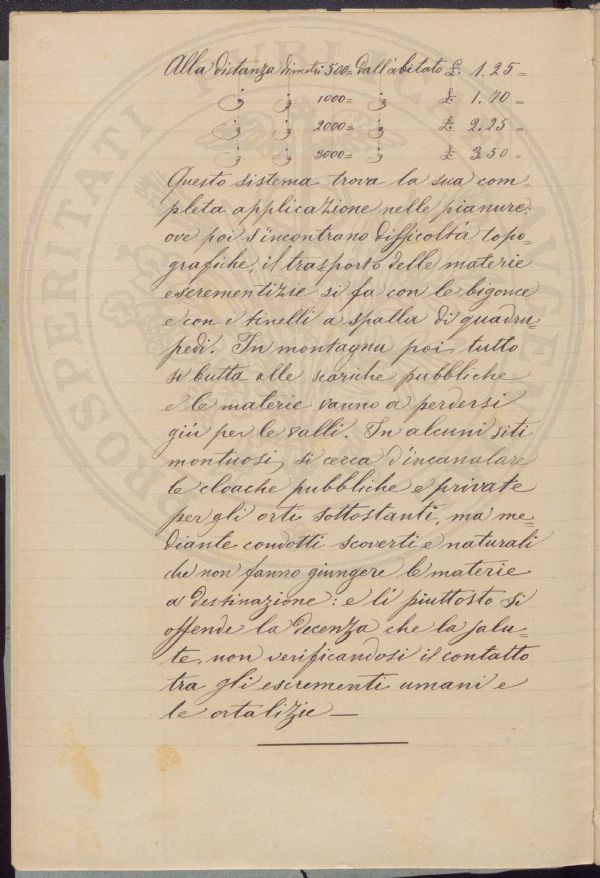 Alla distanza di metri 500= dall'abitato £. 1.25=
" " 1000= " £. 1.70=
" " 2000= " £. 2.25=
" " 3000= " £. 3.50=
Questo sistema trova la sua com=
pleta applicazione nelle pianure:
ove poi s'incontrano difficoltà topo=
grafiche, il trasporto delle materie
escrementizie si fa con le bigonce
e con i tinelli a spalla di quadru=
pedi. In montagna poi, tutto
si butta alle scariche pubbliche
e le materie vanno a perdersi
giù per le valli. In alcuni siti
montuosi, si cerca d'incanalare
le cloache pubbliche e private
per gli orti sottostanti, ma me=
diante condotti scoverti e naturali
che non fanno giungere le materie
a destinazione: e lì piuttosto si
offende la decenza che la salu=
te, non verificandosi il contatto
tra gli escrementi umani e
le ortalizie —
PROSPERITATI PUBLICAE AUGES